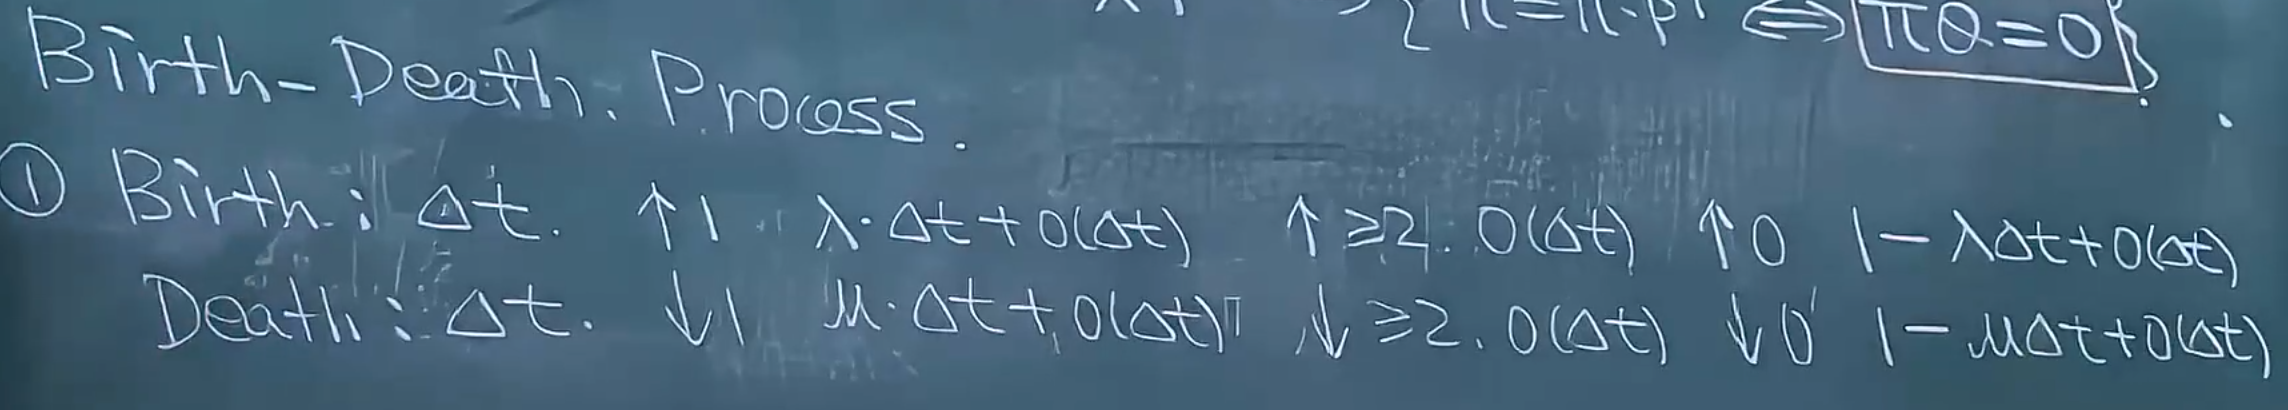 π = π·P ⟺ πQ=0
Birth-Death. Process.
① Birth: Δt. ↑1 λ·Δt+o(Δt) ↑≥2. o(Δt) ↑0 1-λΔt+o(Δt)
Death: Δt. ↓1 μ·Δt+o(Δt) ↓≥2. o(Δt) ↓0 1-μΔt+o(Δt)